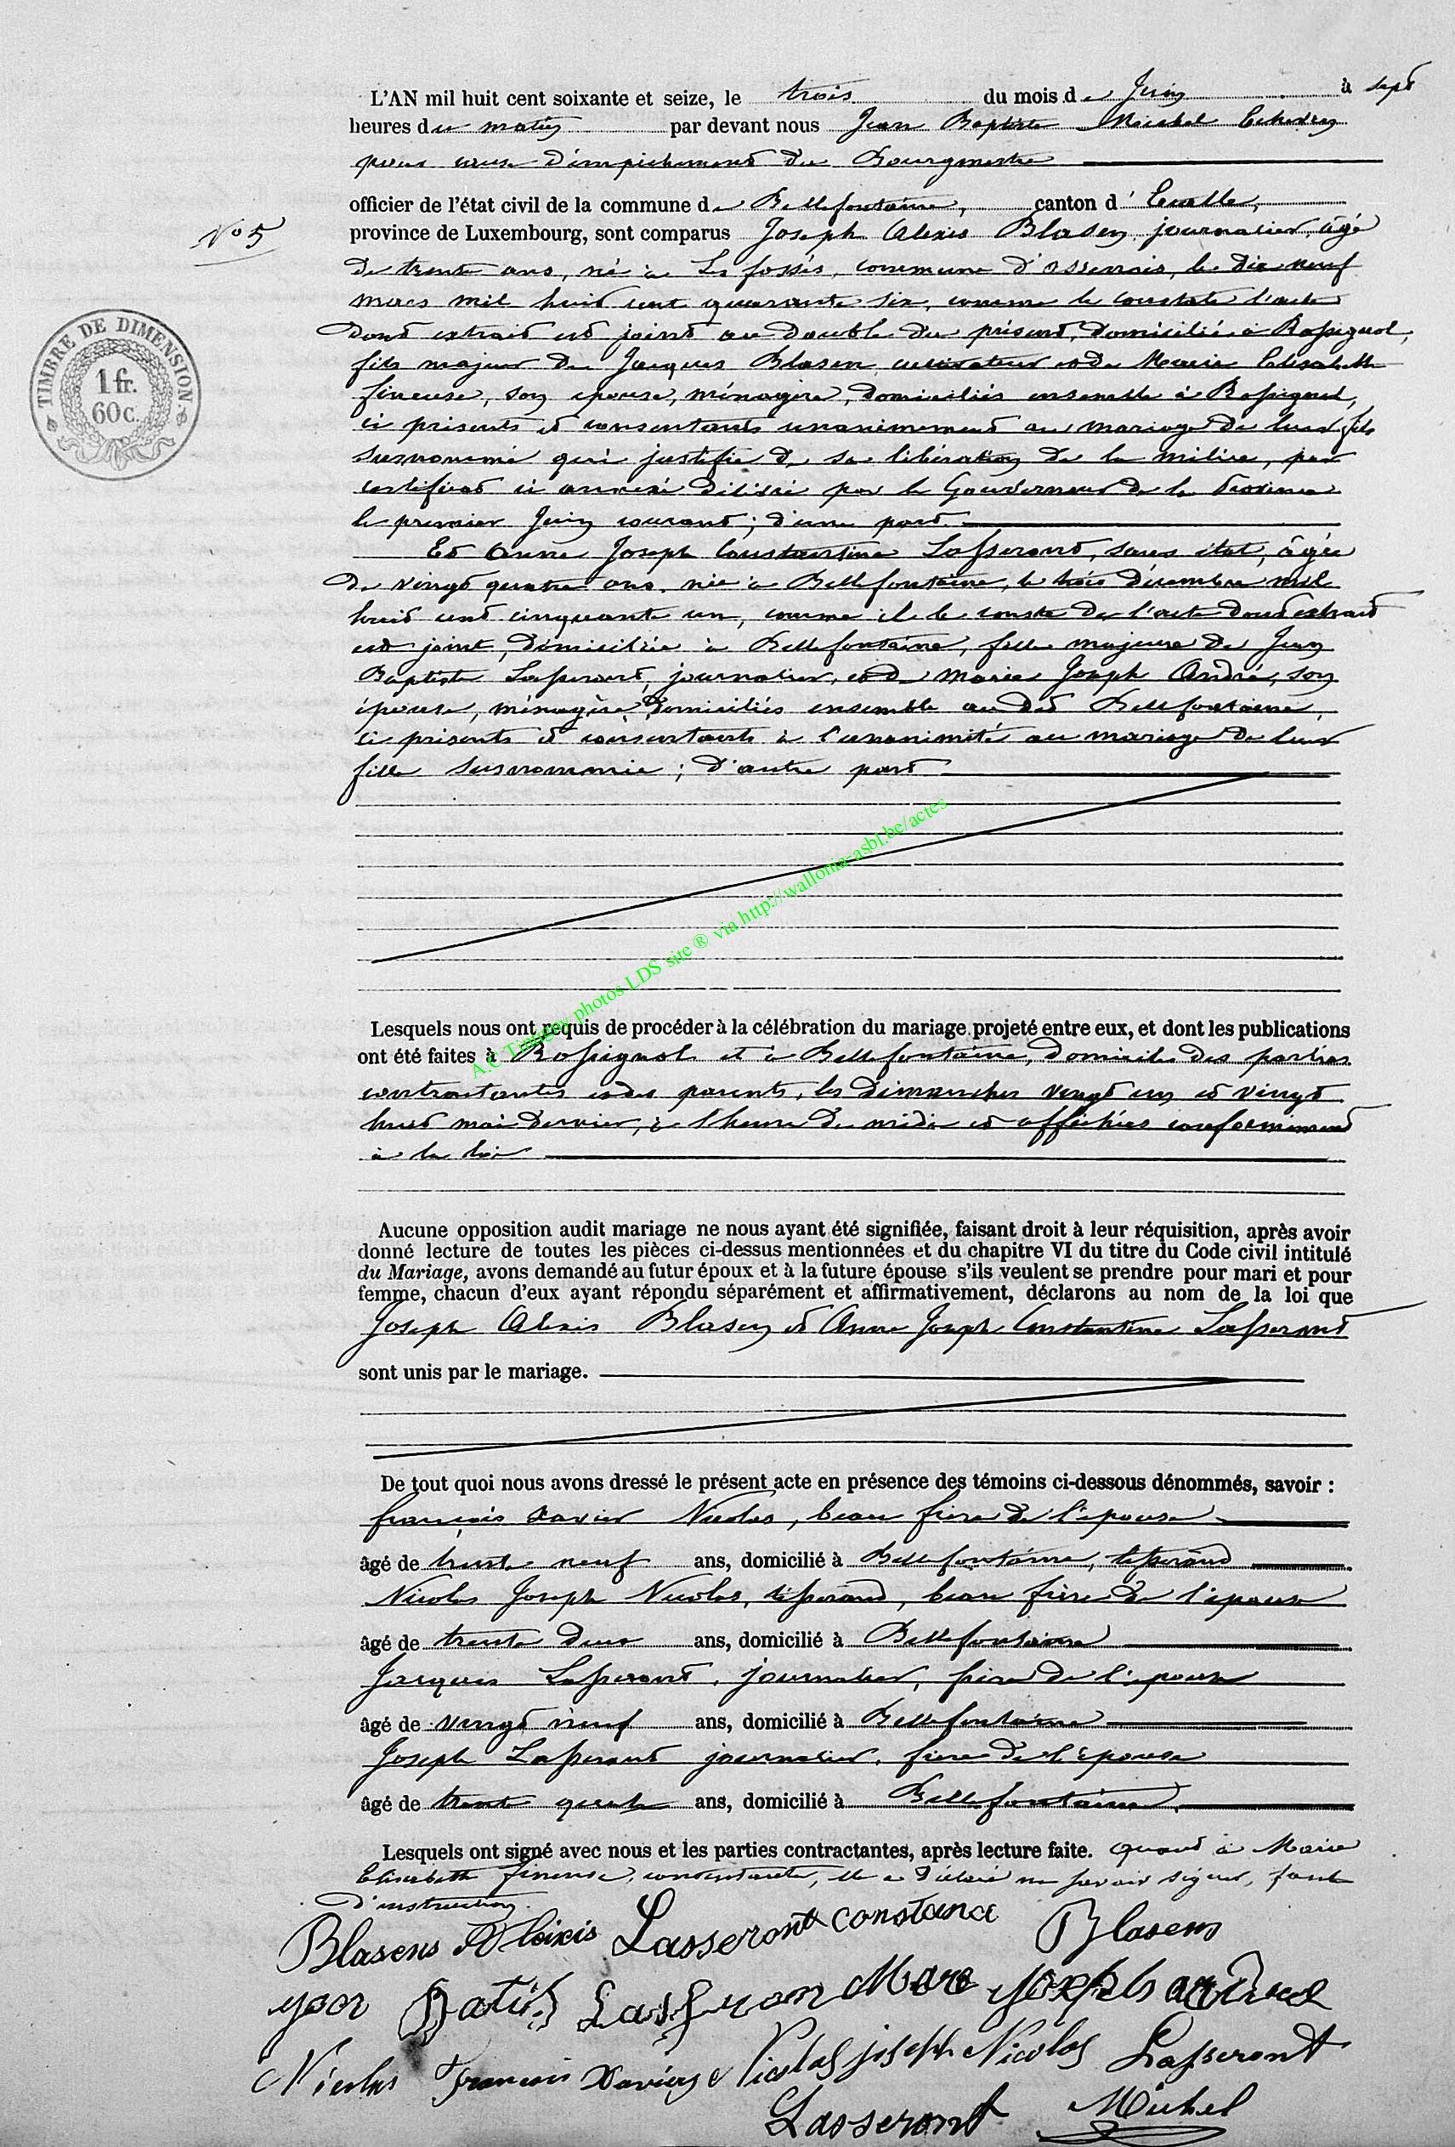 L'AN mil huit cent soixante et seize, le trois du mois de Juin à sept
heures du matin par devant nous Jean Baptiste Michel Echevin
pour cause d'empêchement du Bourgmestre
officier de l'état civil de la commune de Bellefontaine, canton d'Etalle,
N° 5
province de Luxembourg, sont comparus Joseph Alexis Blasen journalier, âgé
de trente ans, né à Les fossés, commune d'Assenois, le dix neuf
mars mil huit cent quarante six, comme le constate l'acte
dont extrait est joint au double du présent, domicilié à Rossignol,
fils majeur de Jacques Blasen cultivateur et de Marie Elisabeth
fineuse, son épouse, ménagère, domiciliés ensemble à Rossignol,
ci présents et consentants unanimement au mariage de leur fils
susnommé qui justifie de sa libération de la milice, par
certificat ci annexé délivré par le Gouverneur de la Province
le premier Juin courant; d'une part.
Et Anne Joseph Constantine Lasseront, sans état, âgée
de vingt quatre ans, née à Bellefontaine, le trois décembre mil
huit cent cinquante un, comme il le conste de l'acte dont extrait
est joint, domiciliée à Bellefontaine, fille majeure de Jean
Baptiste Lasseront, journalier, et de Marie Joseph André, son
épouse, ménagère, domiciliés ensemble au dit Bellefontaine,
ci présents et consentants à l'unanimité au mariage de leur
fille susnommée; d'autre part
TIMBRE DE DIMENSION
1 fr.
60 c.
A.C Tintigny photos LDS site ® via http://wallonia-asbl.be/actes
Lesquels nous ont requis de procéder à la célébration du mariage projeté entre eux, et dont les publications
ont été faites à Rossignol et à Bellefontaine, domicile des parties
contractantes et des parents, les dimanches vingt un et vingt
huit mai dernier, à l'heure de midi et affichées conformément
à la loi
Aucune opposition audit mariage ne nous ayant été signifiée, faisant droit à leur réquisition, après avoir
donné lecture de toutes les pièces ci-dessus mentionnées et du chapitre VI du titre du Code civil intitulé
du Mariage, avons demandé au futur époux et à la future épouse s'ils veulent se prendre pour mari et pour
femme, chacun d'eux ayant répondu séparément et affirmativement, déclarons au nom de la loi que
Joseph Alexis Blasen et Anne Joseph Constantine Lasseront
sont unis par le mariage.
De tout quoi nous avons dressé le présent acte en présence des témoins ci-dessous dénommés, savoir :
françois Xavier Nicolas, beau frère de l'épouse
âgé de trente neuf ans, domicilié à Bellefontaine, tisserand
Nicolas Joseph Nicolas, tisserand, beau frère de l'épouse
âgé de trente deux ans, domicilié à Bellefontaine
Jacques Lasseront, journalier, frère de l'épouse
âgé de vingt neuf ans, domicilié à Bellefontaine
Joseph Lasseront journalier, frère de l'épouse
âgé de trente quatre ans, domicilié à Bellefontaine.
Lesquels ont signé avec nous et les parties contractantes, après lecture faite. Quant à Marie
Elisabeth fineuse, consentante, elle a déclaré ne savoir signer, faute
d'instruction.
Blasens Alexis Lasseront constance Blasens
Batis Lasseron Mare josephs
Nicolas François Xavier Nicolas joseph Nicolas Lasseront
Lasseront Michel